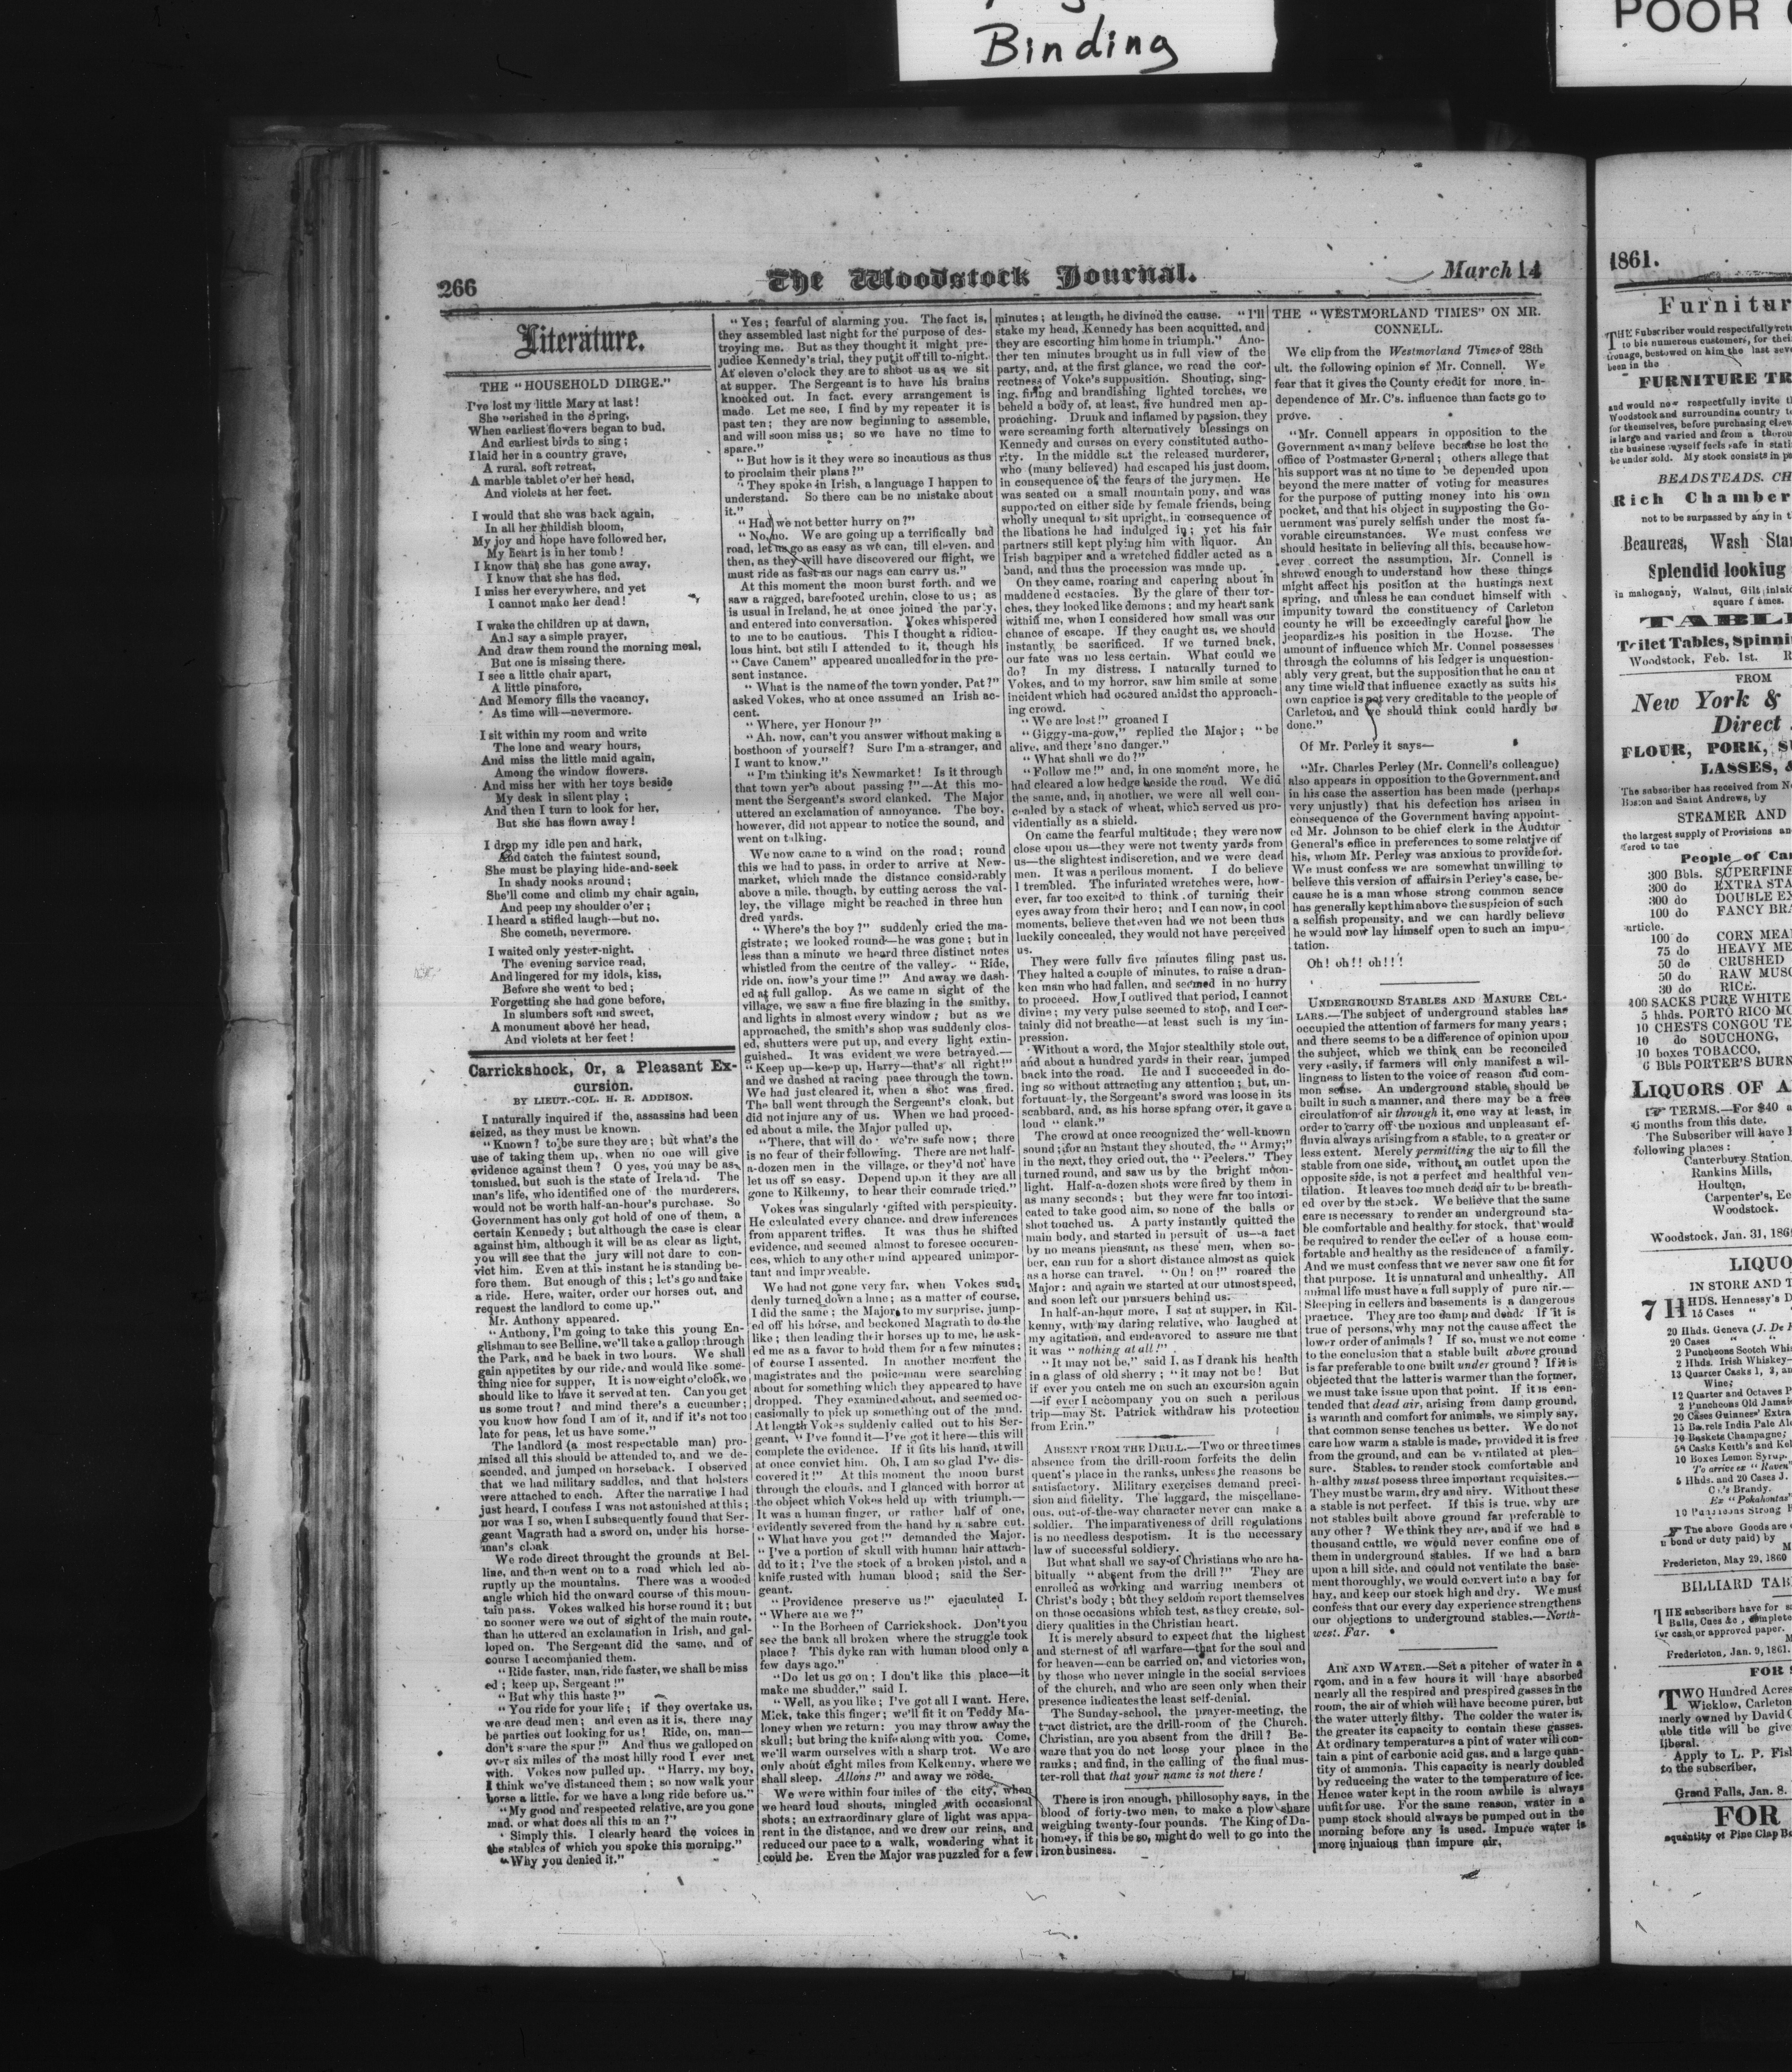 Binding
POOR
266
The Woodstock Journal.
March 14
Literature.
THE "HOUSEHOLD DIRGE."
I've lost my little Mary at last!
She perished in the Spring,
When earliest flowers began to bud,
And earliest birds to sing;
I laid her in a country grave,
A rural, soft retreat,
A marble tablet o'er her head,
And violets at her feet.
I would that she was back again,
In all her childish bloom,
My joy and hope have followed her,
My heart is in her tomb!
I know that she has gone away,
I know that she has fled,
I miss her everywhere, and yet
I cannot make her dead!
I wake the children up at dawn,
And say a simple prayer,
And draw them round the morning meal,
But one is missing there.
I see a little chair apart,
A little pinafore,
And Memory fills the vacancy,
As time will—nevermore.
I sit within my room and write
The lone and weary hours,
And miss the little maid again,
Among the window flowers.
And miss her with her toys beside
My desk in silent play;
And then I turn to look for her,
But she has flown away!
I drop my idle pen and hark,
And catch the faintest sound,
She must be playing hide-and-seek
In shady nooks around;
She'll come and climb my chair again,
And peep my shoulder o'er;
I heard a stifled laugh—but no.
She cometh, nevermore.
I waited only yester-night,
The evening service read,
And lingered for my idols, kiss,
Before she went to bed;
Forgetting she had gone before,
In slumbers soft and sweet,
A monument above her head,
And violets at her feet!
Carrickshock, Or, a Pleasant Ex-
cursion.
BY LIEUT.-COL. H. R. ADDISON.
I naturally inquired if the, assassins had been
seized, as they must be known.
"Known? to be sure they are; but what's the
use of taking them up, when no one will give
evidence against them? O yes, you may be as-
tonished, but such is the state of Ireland. The
man's life, who identified one of the murderers,
would not be worth half-an-hour's purchase. So
Government has only got hold of one of them, a
certain Kennedy; but although the case is clear
against him, although it will be as clear as light,
you will see that the jury will not dare to con-
vict him. Even at this instant he is standing be-
fore them. But enough of this; let's go and take
a ride. Here, waiter, order our horses out, and
request the landlord to come up."
Mr. Anthony appeared.
"Anthony, I'm going to take this young En-
glishman to see Belline, we'll take a gallop through
the Park, and be back in two hours. We shall
gain appetites by our ride, and would like some-
thing nice for supper, It is now eight o'clock, we
should like to have it served at ten. Can you get
us some trout? and mind there's a cucumber;
you know how fond I am of it, and if it's not too
late for peas, let us have some."
The landlord (a most respectable man) pro-
mised all this should be attended to, and we de-
scended, and jumped on horseback. I observed
that we had military saddles, and that holsters
were attached to each. After the narrative I had
just heard, I confess I was not astonished at this;
nor was I so, when I subsequently found that Ser-
geant Magrath had a sword on, under his horse-
man's cloak
We rode direct throught the grounds at Bel-
line, and then went on to a road which led ab-
ruptly up the mountains. There was a wooded
angle which hid the onward course of this moun-
tain pass. Vokes walked his horse round it; but
no sooner were we out of sight of the main route,
than he uttered an exclamation in Irish, and gal-
loped on. The Sergeant did the same, and of
course I accompanied them.
"Ride faster, man, ride faster, we shall be miss
ed; keep up, Sergeant!"
"But why this haste?"
"You ride for your life; if they overtake us,
we are dead men; and even as it is, there may
be parties out looking for us! Ride, on, man—
don't spare the spur!" And thus we galloped on
over six miles of the most hilly rood I ever met
with. Vokes now pulled up. "Harry, my boy,
I think we've distanced them; so now walk your
horse a little, for we have a long ride before us."
"My good and respected relative, are you gone
mad, or what does all this m an?"
Simply this. I clearly heard the voices in
the stables of which you spoke this morning."
"Why you denied it."
"Yes; fearful of alarming you. The fact is,
they assembled last night for the purpose of des-
troying me. But as they thought it might pre-
judice Kennedy's trial, they put it off till to-night.
At eleven o'clock they are to shoot us as we sit
at supper. The Sergeant is to have his brains
knocked out. In fact, every arrangement is
made. Let me see, I find by my repeater it is
past ten; they are now beginning to assemble,
and will soon miss us; so we have no time to
spare."
"But how is it they were so incautious as thus
to proclaim their plans?"
"They spoke in Irish, a language I happen to
understand. So there can be no mistake about
it."
"Had we not better hurry on?"
"No, no. We are going up a terrifically bad
road, let us go as easy as we can, till eleven, and
then, as they will have discovered our flight, we
must ride as fast as our nags can carry us."
At this moment the moon burst forth, and we
saw a ragged, barefooted urchin, close to us; as
is usual in Ireland, he at once joined the party,
and entered into conversation. Vokes whispered
to me to be cautious. This I thought a ridicu-
lous hint, but still I attended to it, though his
"Cave Canem" appeared uncalled for in the pre-
sent instance.
"What is the name of the town yonder, Pat?"
asked Vokes, who at once assumed an Irish ac-
cent.
"Where, yer Honour?"
"Ah, now, can't you answer without making a
bosthoon of yourself? Sure I'm a stranger, and
I want to know."
"I'm thinking it's Newmarket! Is it through
that town yer'e about passing?"—At this mo-
ment the Sergeant's sword clanked. The Major
uttered an exclamation of annoyance. The boy,
however, did not appear to notice the sound, and
went on talking.
We now came to a wind on the road; round
this we had to pass, in order to arrive at New-
market, which made the distance considerably
above a mile, though, by cutting across the val-
ley, the village might be reached in three hun
dred yards.
"Where's the boy?" suddenly cried the ma-
gistrate; we looked round—he was gone; but in
less than a minute we heard three distinct notes
whistled from the centre of the valley. "Ride,
ride on, now's your time!" And away we dash-
ed at full gallop. As we came in sight of the
village, we saw a fine fire blazing in the smithy,
and lights in almost every window; but as we
approached, the smith's shop was suddenly clos-
ed, shutters were put up, and every light extin-
guished. It was evident we were betrayed.—
"Keep up—keep up, Harry—that's all right!"
and we dashed at racing pace through the town.
We had just cleared it, when a shot was fired.
The ball went through the Sergeant's cloak, but
did not injure any of us. When we had proceed-
ed about a mile, the Major pulled up.
"There, that will do· we're safe now; there
is no fear of their following. There are not half-
a-dozen men in the village, or they'd not have
let us off so easy. Depend upon it they are all
gone to Kilkenny, to hear their comrade tried."
Vokes was singularly gifted with perspicuity.
He calculated every chance, and drew inferences
from apparent trifles. It was thus he shifted
evidence, and seemed almost to foresee occuren-
ces, which to any other mind appeared unimpor-
tant and improveable.
We had not gone very far, when Vokes sud-
denly turned down a lane; as a matter of course,
I did the same; the Major, to my surprise, jump-
ed off his horse, and beckoned Magrath to do the
like; then leading their horses up to me, he ask-
ed me as a favor to hold them for a few minutes;
of course I assented. In another moment the
magistrates and the policeman were searching
about for something which they appeared to have
dropped. They examined about, and seemed oc-
casionally to pick up something out of the mud.
At length Vokes suddenly called out to his Ser-
geant, "I've found it—I've got it here—this will
complete the evidence. If it fits his hand, it will
at once convict him. Oh, I am so glad I've dis-
covered it!" At this moment the moon burst
through the clouds, and I glanced with horror at
the object which Vokes held up with triumph.—
It was a human finger, or rather half of one,
evidently severed from the hand by a sabre cut.
"What have you got!" demanded the Major.
"I've a portion of skull with human hair attach-
dd to it; I've the stock of a broken pistol, and a
knife rusted with human blood; said the Ser-
geant.
"Providence preserve us!" ejaculated I.
"Where are we?"
"In the Borheen of Carrickshock. Don't you
see the bank all broken where the struggle took
place? This dyke ran with human blood only a
few days ago."
"Do let us go on; I don't like this place—it
make me shudder," said I.
"Well, as you like; I've got all I want. Here,
Mick, take this finger; we'll fit it on Teddy Ma-
loney when we return: you may throw away the
skull; but bring the knife along with you. Come,
we'll warm ourselves with a sharp trot. We are
only about eight miles from Kelkenny, where we
shall sleep. Allons!" and away we rode.
We were within four miles of the city, when
we heard loud shouts, mingled with occasional
shots; an extraordinary glare of light was appa-
rent in the distance, and we drew our reins, and
reduced our pace to a walk, wondering what it
could be. Even the Major was puzzled for a few
minutes; at length, he divined the cause. "I'll
stake my head, Kennedy has been acquitted, and
they are escorting him home in triumph." Ano-
ther ten minutes brought us in full view of the
party, and, at the first glance, we read the cor-
rectness of Voke's supposition. Shouting, sing-
ing, firing and brandishing lighted torches, we
beheld a body of, at least, five hundred men ap-
proaching. Drunk and inflamed by passion, they
were screaming forth alternatively blessings on
Kennedy and curses on every constituted autho-
rity. In the middle sat the released murderer,
who (many believed) had escaped his just doom,
in consequence of the fears of the jurymen. He
was seated on a small mountain pony, and was
supported on either side by female friends, being
wholly unequal to sit upright, in consequence of
the libations he had indulged in; yet his fair
partners still kept plying him with liquor. An
Irish bagpiper and a wretched fiddler acted as a
band, and thus the procession was made up.
On they came, roaring and capering about in
maddened ecstacies. By the glare of their tor-
ches, they looked like demons; and my heart sank
within me, when I considered how small was our
chance of escape. If they caught us, we should
instantly be sacrificed. If we turned back,
our fate was no less certain. What could we
do? In my distress, I naturally turned to
Vokes, and to my horror, saw him smile at some
incident which had occured amidst the approach-
ing crowd.
"We are lost!" groaned I
"Giggy-ma-gow," replied the Major; "be
alive, and there's no danger."
"What shall we do?"
"Follow me!" and, in one moment more, he
had cleared a low hedge beside the road. We did
the same, and, in another, we were all well con-
cealed by a stack of wheat, which served us pro-
videntially as a shield.
On came the fearful multitude; they were now
close upon us—they were not twenty yards from
us—the slightest indiscretion, and we were dead
men. It was a perilous moment. I do believe
I trembled. The infuriated wretches were, how-
ever, far too excited to think of turning their
eyes away from their hero; and I can now, in cool
moments, believe that even had we not been thus
luckily concealed, they would not have perceived
us.
They were fully five minutes filing past us.
They halted a couple of minutes, to raise a drun-
ken man who had fallen, and seemed in no hurry
to proceed. How I outlived that period, I cannot
divine; my very pulse seemed to stop, and I cer-
tainly did not breathe—at least such is my im-
pression.
Without a word, the Major stealthily stole out,
and about a hundred yards in their rear, jumped
back into the road. He and I succeeded in do-
ing so without attracting any attention; but, un-
fortunat ly, the Sergeant's sword was loose in its
scabbard, and, as his horse sprang over, it gave a
loud "clank."
The crowd at once recognized the well-known
sound; for an instant they shouted, the "Army;"
in the next, they cried out, the "Peelers." They
turned round, and saw us by the bright moon-
light. Half-a-dozen shots were fired by them in
as many seconds; but they were far too intoxi-
cated to take good aim, so none of the balls or
shot touched us. A party instantly quitted the
main body, and started in persuit of us—a fact
by no means pleasant, as these men, when so-
ber, can run for a short distance almost as quick
as a horse can travel. "On! on!" roared the
Major: and again we started at our utmost speed,
and soon left our pursuers behind us.
In half-an-hour more, I sat at supper, in Kil-
kenny, with my daring relative, who laughed at
my agitation, and endeavored to assure me that
it was "nothing at all!"
"It may not be," said I, as I drank his health
in a glass of old sherry; "it may not be! But
if ever you catch me on such an excursion again
—if ever I accompany you on such a perilous
trip—may St. Patrick withdraw his protection
from Erin."
ABSENT FROM THE DRILL.—Two or three times
absence from the drill-room forfeits the delin
quent's place in the ranks, unless the reasons be
satisfactory. Military exercises demand preci-
sion and fidelity. The laggard, the miscellane-
ous, out-of-the-way character never can make a
soldier. The imparativeness of drill regulations
is no needless despotism. It is the necessary
law of successful soldiery.
But what shall we say of Christians who are ha-
bitually "absent from the drill?" They are
enrolled as working and warring members ot
Christ's body; but they seldom report themselves
on those occasions which test, as they create, sol-
diery qualities in the Christian heart.
It is merely absurd to expect that the highest
and sternest of all warfare—that for the soul and
for heaven—can be carried on, and victories won,
by those who never mingle in the social services
of the church, and who are seen only when their
presence indicates the least self-denial.
The Sunday-school, the prayer-meeting, the
tract district, are the drill-room of the Church.
Christian, are you absent from the drill? Be-
ware that you do not loose your place in the
ranks; and find, in the calling of the final mus-
ter-roll that your name is not there!
There is iron enough, phillosophy says, in the
blood of forty-two men, to make a plow share
weighing twenty-four pounds. The King of Da-
homey, if this be so, might do well to go into the
iron business.
THE "WESTMORLAND TIMES" ON MR.
CONNELL.
We clip from the Westmorland Times of 28th
ult. the following opinion of Mr. Connell. We
fear that it gives the County credit for more in-
dependence of Mr. C's. influence than facts go to
prove.
"Mr. Connell appears in opposition to the
Government as many believe because he lost the
office of Postmaster General; others allege that
his support was at no time to be depended upon
beyond the mere matter of voting for measures
for the purpose of putting money into his own
pocket, and that his object in supposting the Go-
uernment was purely selfish under the most fa-
vorable circumstances. We must confess we
should hesitate in believing all this, because how-
ever correct the assumption, Mr. Connell is
shrewd enough to understand how these things
might affect his position at the hustings next
spring, and unless he can conduct himself with
impunity toward the constituency of Carleton
county he will be exceedingly careful how he
jeopardizes his position in the House. The
amount of influence which Mr. Connel possesses
through the columns of his ledger is unquestion-
ably very great, but the supposition that he can at
any time wield that influence exactly as suits his
own caprice is not very creditable to the people of
Carleton, and we should think could hardly be
done."
Of Mr. Perley it says—
"Mr. Charles Perley (Mr. Connell's colleague)
also appears in opposition to the Government, and
in his case the assertion has been made (perhaps
very unjustly) that his defection has arisen in
consequence of the Government having appoint-
ed Mr. Johnson to be chief clerk in the Auditor
General's office in preferences to some relative of
his, whom Mr. Perley was anxious to provide for.
We must confess we are somewhat unwilling to
believe this version of affairs in Perley's case, be-
cause he is a man whose strong common sence
has generally kept him above the suspicion of such
a selfish propensity, and we can hardly believe
he would now lay himself open to such an impu-
tation.
Oh! oh!! oh!!!
UNDERGROUND STABLES AND MANURE CEL-
LARS.—The subject of underground stables has
occupied the attention of farmers for many years;
and there seems to be a difference of opinion upon
the subject, which we think can be reconciled
very easily, if farmers will only manifest a wil-
lingness to listen to the voice of reason and com-
mon sense. An underground stable should be
built in such a manner, and there may be a free
circulation of air through it, one way at least, in
order to carry off the noxious and unpleasant ef-
fluvia always arising from a stable, to a greater or
less extent. Merely permitting the air to fill the
stable from one side, without an outlet upon the
opposite side, is not a perfect and healthful ven-
tilation. It leaves too much dead air to be breath-
ed over by the stock. We believe that the same
care is necessary to render an underground sta-
ble comfortable and healthy for stock, that would
be required to render the celler of a house com-
fortable and healthy as the residence of a family.
And we must confess that we never saw one fit for
that purpose. It is unnatural and unhealthy. All
animal life must have a full supply of pure air.—
Sleeping in cellers and basements is a dangerous
practice. They are too damp and dead. If it is
true of persons, why may not the cause affect the
lower order of animals? If so, must we not come
to the conclusion that a stable built above ground
is far preferable to one built under ground? If it is
objected that the latter is warmer than the former,
we must take issue upon that point. If it is con-
tended that dead air, arising from damp ground,
is warmth and comfort for animals, we simply say,
that common sense teaches us better. We do not
care how warm a stable is made, provided it is free
from the ground, and can be ventilated at plea-
sure. Stables, to render stock comfortable and
healthy must posess three important requisites.—
They must be warm, dry and airy. Without these
a stable is not perfect. If this is true, why are
not stables built above ground far preferable to
any other? We think they are, and if we had a
thousand cattle, we would never confine one of
them in underground stables. If we had a barn
upon a hill side, and could not ventilate the base-
ment thoroughly, we would convert into a bay for
hay, and keep our stock high and dry. We must
confess that our every day experience strengthens
our objections to underground stables.—North-
west. Far.
AIR AND WATER.—Set a pitcher of water in a
room, and in a few hours it will have absorbed
nearly all the respired and prespired gasses in the
room, the air of which will have become purer, but
the water utterly filthy. The colder the water is,
the greater its capacity to contain these gasses.
At ordinary temperatures a pint of water will con-
tain a pint of carbonic acid gas, and a large quan-
tity of ammonia. This capacity is nearly doubled
by reducing the water to the temperature of ice.
Hence water kept in the room awhile is always
unfit for use. For the same reason, water in a
pump stock should always be pumped out in the
morning before any is used. Impure water is
more injuaious than impure air,
1861.
Furnitur
THE Subscriber would respectfully
to his numerous customers, for thei
tronage, bestowed on him the last
been in the
FURNITURE TR
and would now respectfully invite
Woodstock and surrounding country
for themselves, before purchasing
is large and varied and from a
the business myself feels safe in
be under sold. My stock consists in
BEADSTEADS. CH
Rich Chamber
not to be surpassed by any in
Beaureas, Wash Sta
Splendid looking
in mahogany, Walnut, Gilt
square f ames.
TABL
Toilet Tables, Spinni
Woodstock, Feb. 1st.
FROM
New York &
Direct
FLOUR, PORK,
LASSES, &
The subscriber has received from
Boston and Saint Andrews, by
STEAMER AND
the largest supply of Provisions
fered to the
People of Ca
300 Bbls. SUPERFINE
300 do EXTRA STA
300 do DOUBLE EX
100 do FANCY BRA
article.
100 do CORN MEA
75 do HEAVY ME
50 do CRUSHED
50 do RAW MUSC
30 do RICE.
400 SACKS PURE WHITE
5 hhds. PORTO RICO MO
10 CHESTS CONGOU TE
10 do SOUCHONG,
10 boxes TOBACCO,
6 Bbls PORTER'S BURN
LIQUORS OF A
TERMS.—For $40
6 months from this date.
The Subscriber will have
following places:
Canterbury Station,
Rankins Mills,
Houlton,
Carpenter's,
Woodstock.
Woodstock, Jan. 31, 186
LIQUO
IN STORE AND
7 HHDS. Hennessy's
15 Cases "
20 Hhds. Geneva
20 Cases "
2 Puncheons Scotch Whi
2 Hhds. Irish Whiskey
13 Quarter Casks 1, 3,
Wine;
12 Quarter and Octaves
2 Puncheons Old Jamai
20 Cases Guiness' Extra
15 Barrels India Pale Al
10 Baskets Champagne;
Casks Keith's and
10 Boxes Lemon Syrup,
To arrive ex "Raven"
5 Hhds. and 20 Cases J.
Co.'s Brandy.
Ex "Pokahontas"
10 Strong
The above Goods are
bond or duty paid) by
Fredericton, May 29, 1860
BILLIARD TAB
THE subscribers have for
Balls, Cues &c,
for cash or approved paper.
Fredericton, Jan. 9, 1861.
FOR
TWO Hundred Acres
Wicklow, Carleton
merly owned by David
able title will be give
liberal.
Apply to L. P. Fis
to the subscriber,
Grand Falls, Jan. 8.
FOR
aquantity of Pine Clap